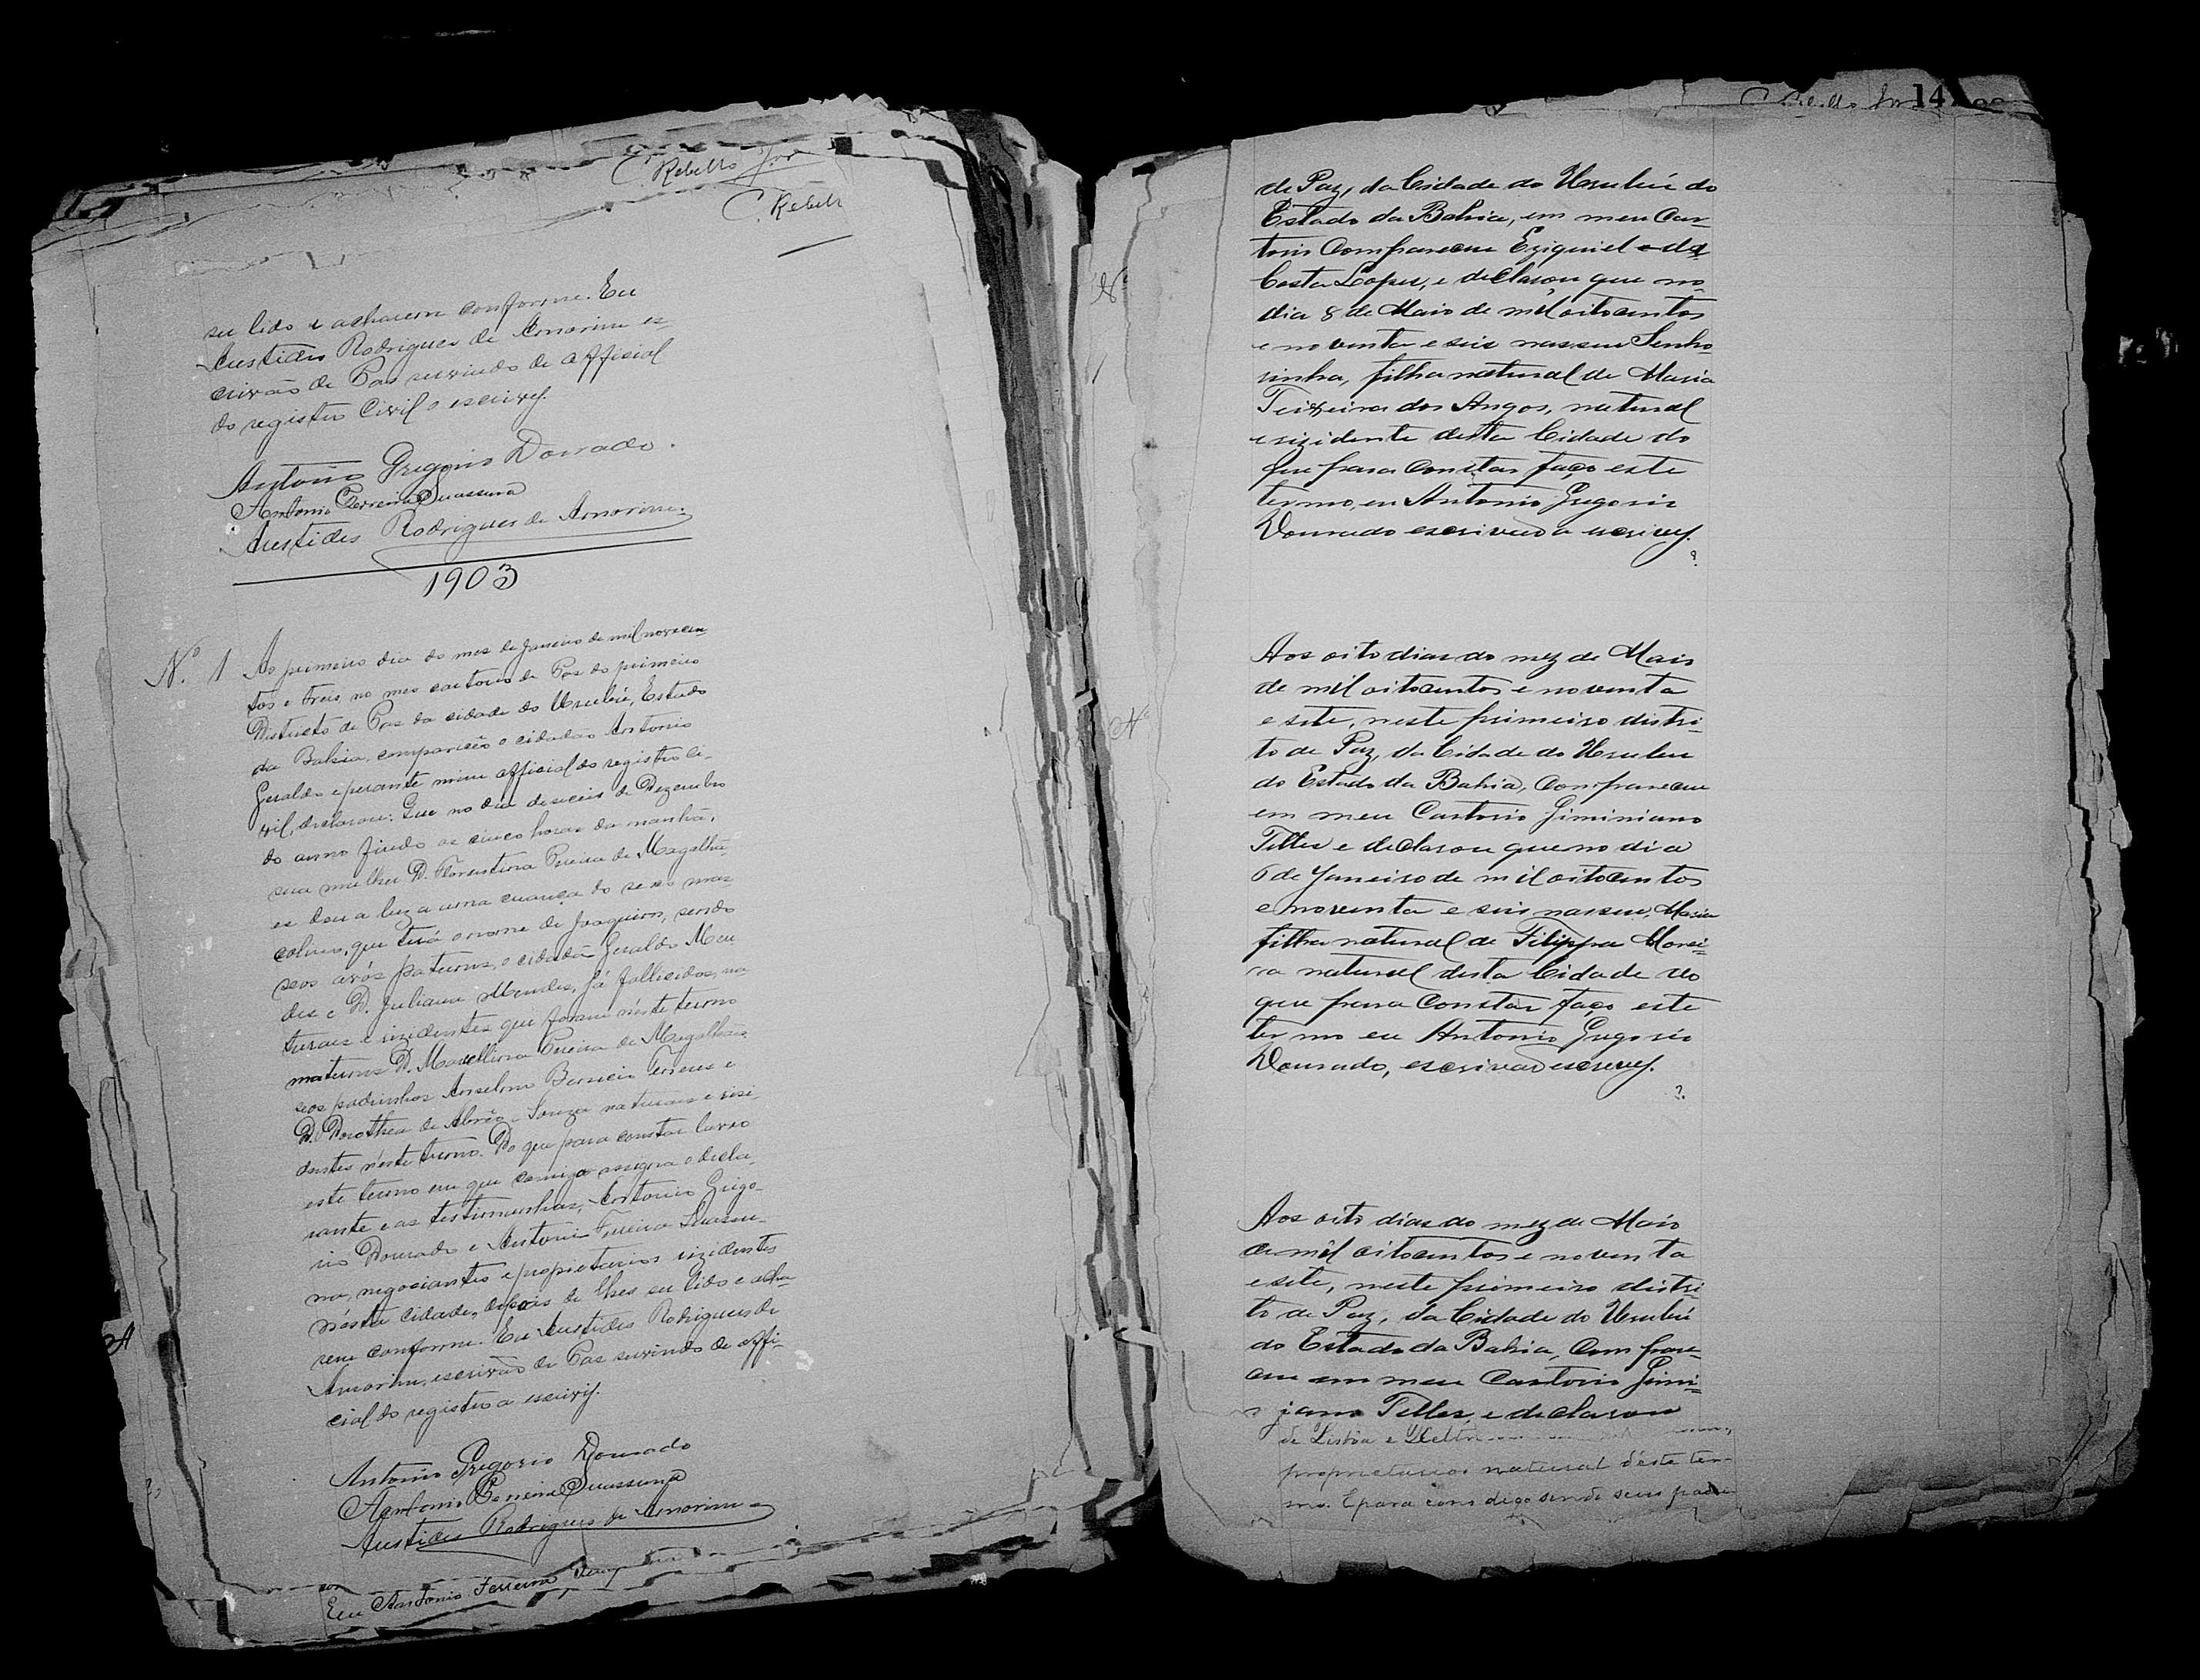 C. Rebello Jor
C. Rebello
ser lido e acharem conforme. Eu
Aristides Rodrigues de Amorim es-
crivão de Paz servindo de official
do registro Civil o escrivy.
Antonio Gregorio Dourado.
Antonio Ferreira Suassuna
Aristides Rodrigues de Amorim.
1903
Nº 1 Ao primeiro dia do mes de Janeiro de mil novecen-
tos e treis, no meo cartorio de Paz do primeiro
Districto de Paz da cidade do Urubú, Estado
da Bahia, compareceo o cidadão Antonio
Geraldo e perante mim official do registro ci-
vil, declarou: Que no dia deseceis de Dezembro
do anno findo as cinco horas da manhã,
sua mulher D. Florentina Pereira de Magalhã-
es deu a luz a uma creança do sexo mas-
colino, que terá o nome de Joaquim, sendo
seos avós paternos, o cidadão Geraldo Men-
des e D. Juliana Mendes, já fallecidos, na-
turaes e rizidentes que foram n'este termo
maternos D. Marcellina Pereira de Magalhães
seos padrinhos Anselmo Ferreira e
D. Dorothea de Abrêo e Souza naturaes e risi-
dentes n'este termo. Do que para constar lavro
este termo em que comigo assigna o decla-
rante e as testimunhas, Antonio Grigo-
rio Dourado e Antonio Ferreira Suassu-
na, negociantes e propietarios rizidentes
nésta cidade, depois de lhes ser lido e acha-
rem conforme. Eu Aristides Rodrigues de
Amorim, escrivão de Paz servindo de offi-
cial do registro a escrivy.
Antonio Gregorio Dourado
Antonio Ferreira Suassuna
Aristides Rodrigues de Amorim
Eu Antonio Ferreira
14
de Paz, da Cidade do Urubú do
Estado da Bahia, em meu Car-
torio Compareceu Eziquiel da
Costa Lopes, e declarou que no
dia 8 de Maio de mil oitocentos
e noventa e seis nasseu Senho-
rinha, filha natural de Maria
Teixeira dos Anjos, natural
e rizidente desta Cidade do
que para Constar faço este
termo, eu Antonio Gregorio
Dourado escrivão a escrevy.
Nº
Aos oito dias do mez de Maio
de mil oitocentos e noventa
e sete, neste primeiro distri-
to de Paz, da Cidade do Urubu
do Estado da Bahia, Compareceu
em meu Cartorio Giminiano
Telles e declarou que no dia
6 de Janeiro de mil oitocentos
e noventa e seis nasseu, Maria
filha natural de Filippa Morei-
ra natural desta Cidade do
que para Constar faço este
termo eu Antonio Gregorio
Dourado, escrivão escrevy.
Nº
Aos oito dias do mez de Maio
de mil oitocentos e noventa
e sete, neste primeiro distri-
to de Paz, da Cidade do Urubú
do Estado da Bahia, Compare-
ceu em meu Cartorio Gimi-
niano Telles, e declarou
de Lisbôa e
proprietarios natural déste ter-
mo. E para cons digo sendo seus padri-